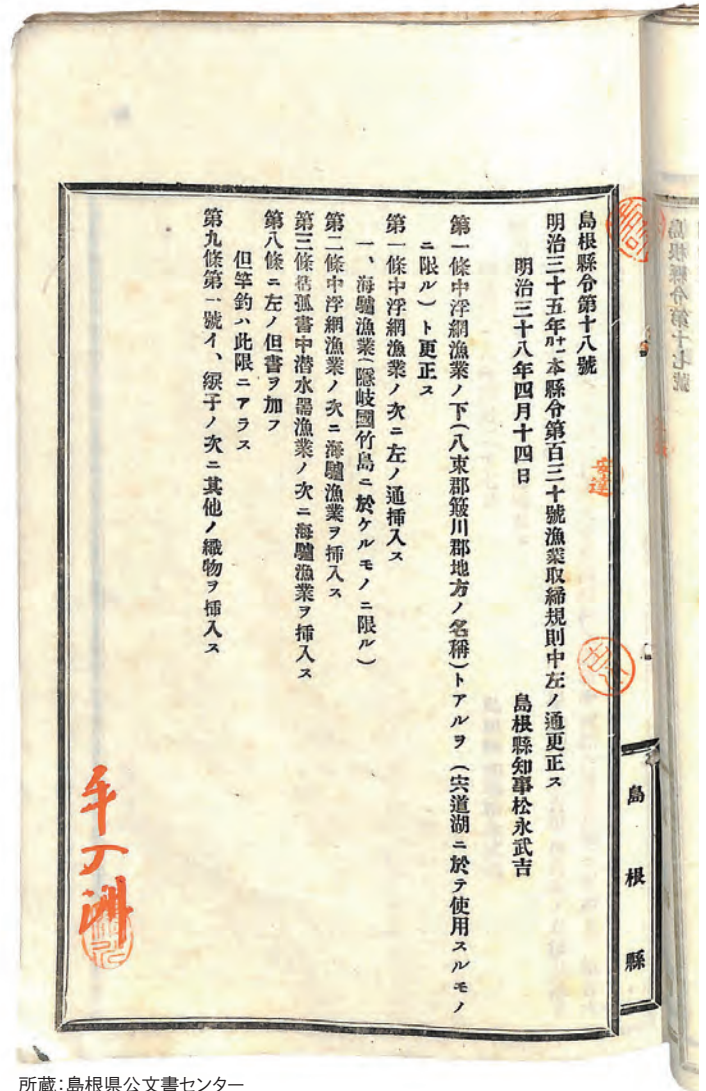 島根縣令第十八號
明治三十五年十一月本縣令第百三十號漁業取締規則中左ノ通更正ス
明治三十八年四月十四日
島根縣知事松永武吉
第一條中浮網漁業ノ下(八束郡簸川郡地方ノ名稱)トアルヲ(宍道湖ニ於テ使用スルモノ
ニ限ル)ト更正ス
第一條中浮網漁業ノ次ニ左ノ通挿入ス
一、海驢漁業(隱岐國竹島ニ於ケルモノニ限ル)
第二條中浮網漁業ノ次ニ海驢漁業ヲ挿入ス
第三條括孤書中潜水器漁業ノ次ニ海驢漁業ヲ挿入ス
第八條ニ左ノ但書ヲ加フ
但竿釣ハ此限ニアラス
第九條第一號イ、綟子ノ次ニ其他ノ織物ヲ挿入ス
島根縣
島根縣令第十七號
安達
所蔵:島根県公文書センター